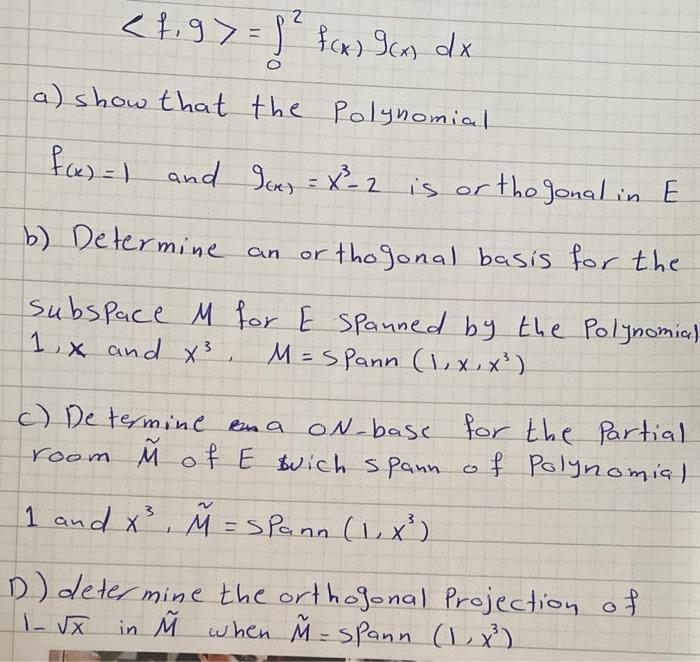 < f, g > = ∫₀² f(x) g(x) dx
a) show that the Polynomial
f(x) = 1 and g(x) = x³-2 is orthogonal in E
b) Determine an orthogonal basis for the
subspace M for E spanned by the Polynomial
1, x and x³, M = Spann (1, x, x³)
c) Determine a ON-base for the Partial
room M̃ of E wich spann of Polynomial
1 and x³, M̃ = Spann (1, x³)
D) determine the orthogonal Projection of
1-√x in M̃ when M̃ = spann (1, x³)